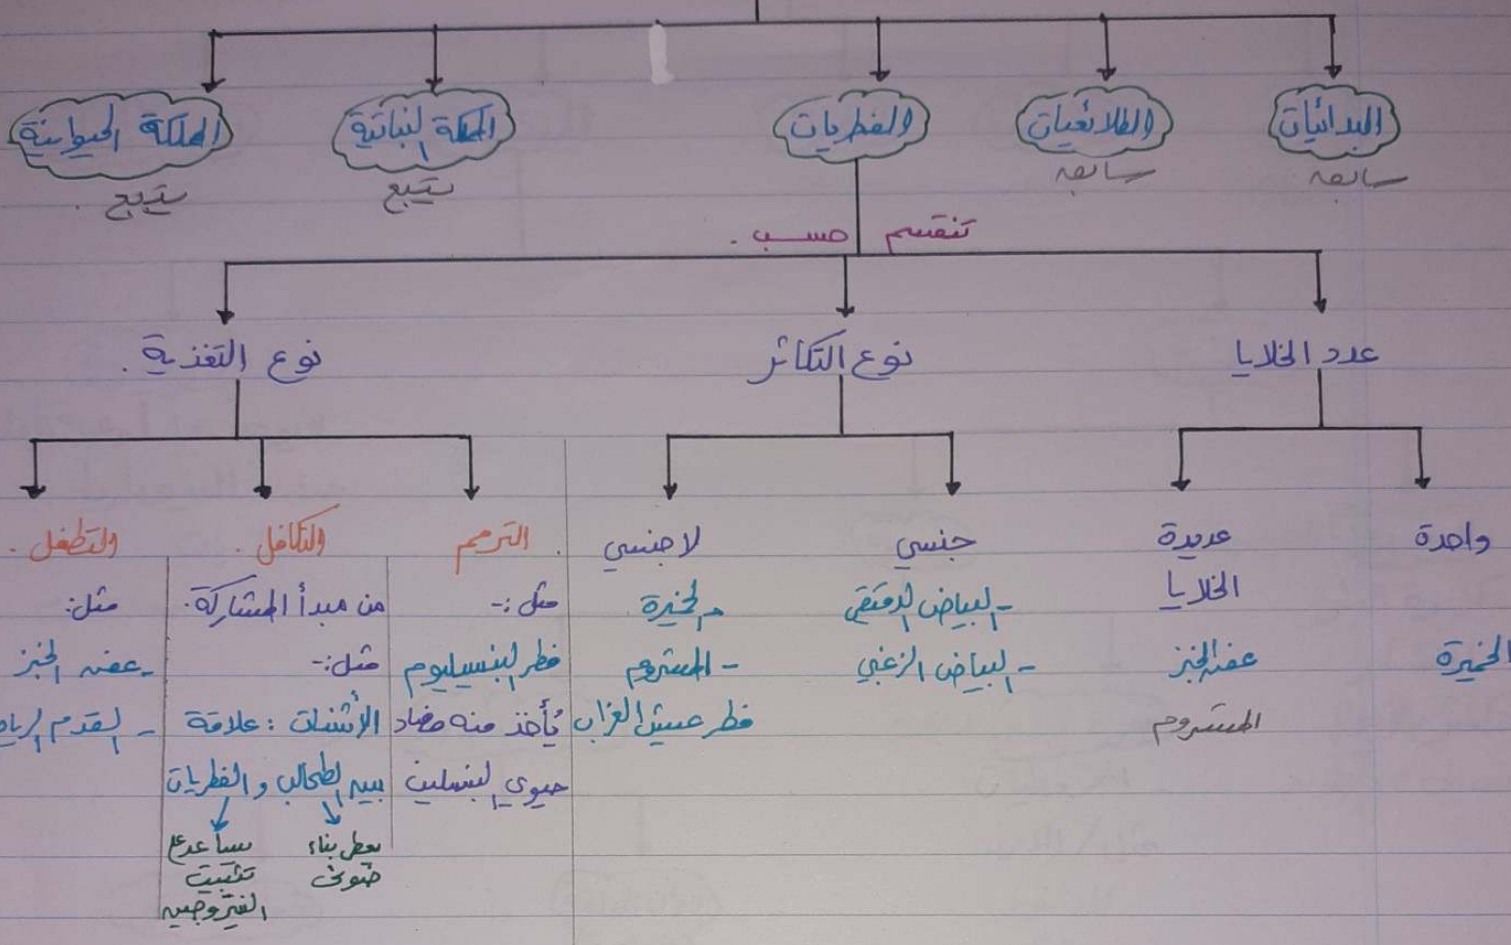 البدائيات
سابقه
الطلائعيات
سابقه
الفطريات
المملكة النباتية
يتبع
المملكة الحيوانية
يتبع
تنقسم حسب .
عدد الخلايا
نوع التكاثر
نوع التغذية .
واحدة
الخميرة
عديدة
الخلايا
عفن الخبز
المشروم
جنسي
- البياض الدقيقي
- البياض الزغبي
لا جنسي
- الخميرة
- المشروم
فطر عيش الغراب
الترمم
مثل :-
فطر البنسيليوم
يُأخذ منه مضاد
حيوي البنسلين
والتكافل .
من مبدأ المشاركة .
مثل :-
الأشنات : علاقة
بين الطحالب و الفطريات
بناء
ضوئي
يساعد ع
تثبيت
النيتروجين
والتطفل .
مثل :
- عفن الخبز
- القدم